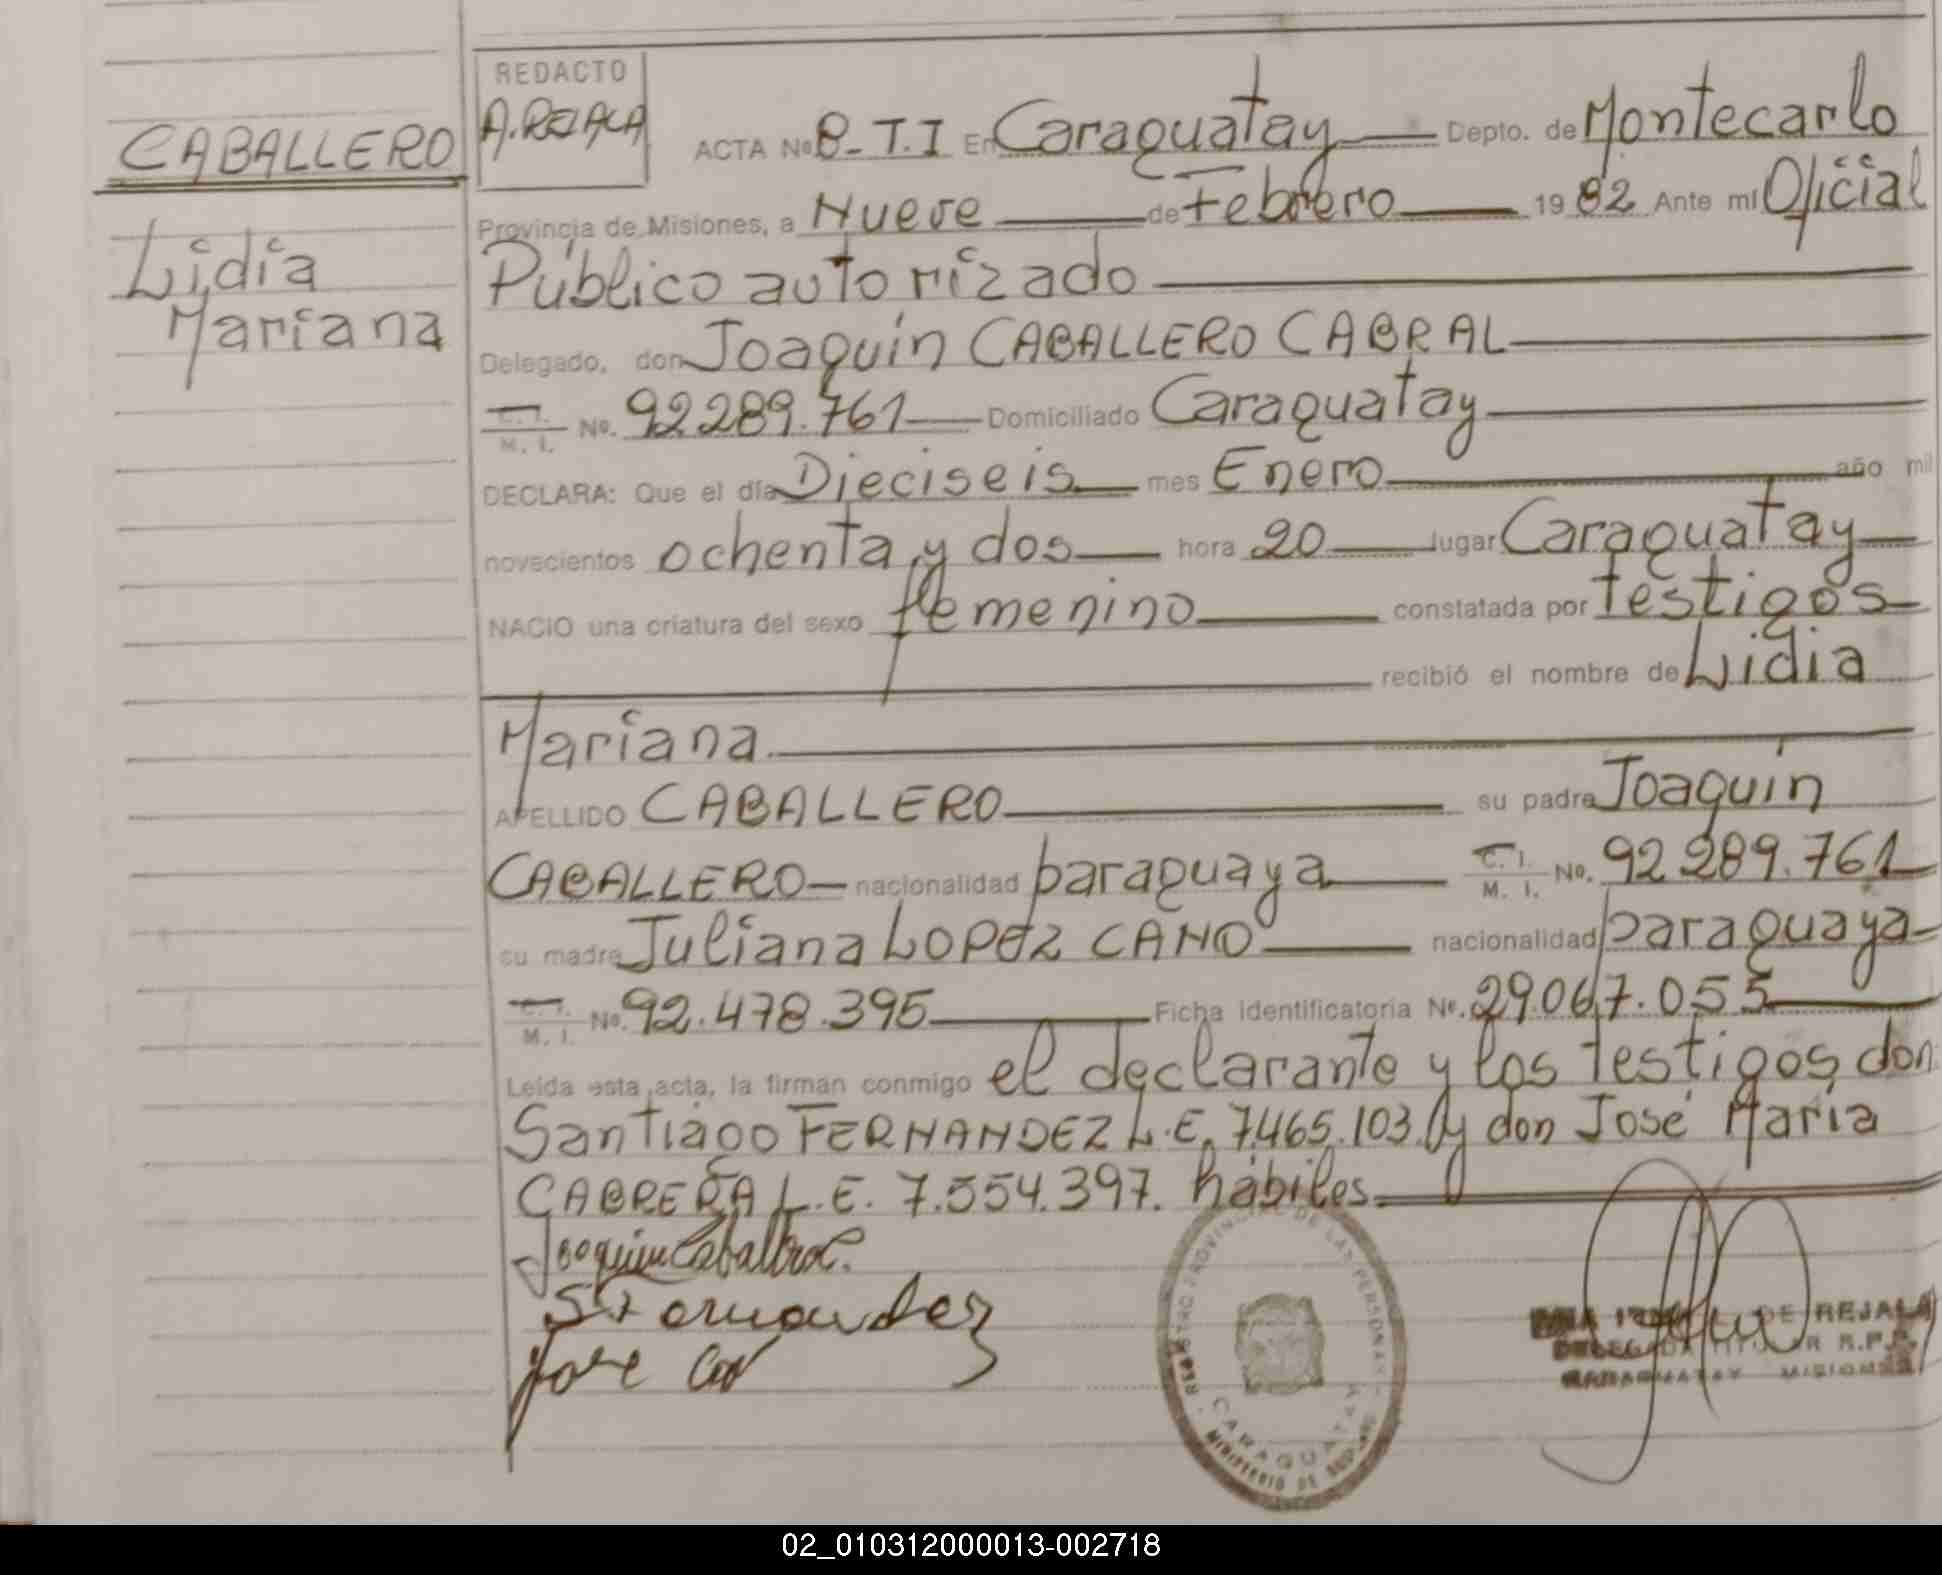 REDACTO
A. REJALA
CABALLERO
Lidia
Mariana
ACTA No 8-T.I En Caraguatay Depto. de Montecarlo
Provincia de Misiones, a Nueve de Febrero 1982 Ante mí Oficial
Público autorizado
Delegado, don Joaquín CABALLERO CABRAL
C. I. M. I. No. 92.289.761 Domiciliado Caraguatay
DECLARA: Que el día Dieciseis mes Enero año mil
novecientos ochenta y dos hora 20 lugar Caraguatay
NACIO una criatura del sexo femenino constatada por testigos
recibió el nombre de Lidia
Mariana
APELLIDO CABALLERO su padre Joaquín
CABALLERO nacionalidad paraguaya C. I. M. I. No. 92.289.761
su madre Juliana LOPEZ CANO nacionalidad paraguaya
C. I. M. I. No. 92.478.395 Ficha identificatoria Nº. 29.067.055
Leída esta acta, la firman conmigo el declarante y los testigos don
Santiago FERNANDEZ L.E. 7.465.103 y don José María
CABRERA L.E. 7.554.397. hábiles
Joaquin Caballero C.
S Fernandez
Jose
REGISTRO PROVINCIAL DE LAS PERSONAS
CARAGUATAY
MINISTERIO DE
DE REJALA
DELEGADA TITULAR R.P.P.
CARAGUATAY MISIONES
02_010312000013-002718